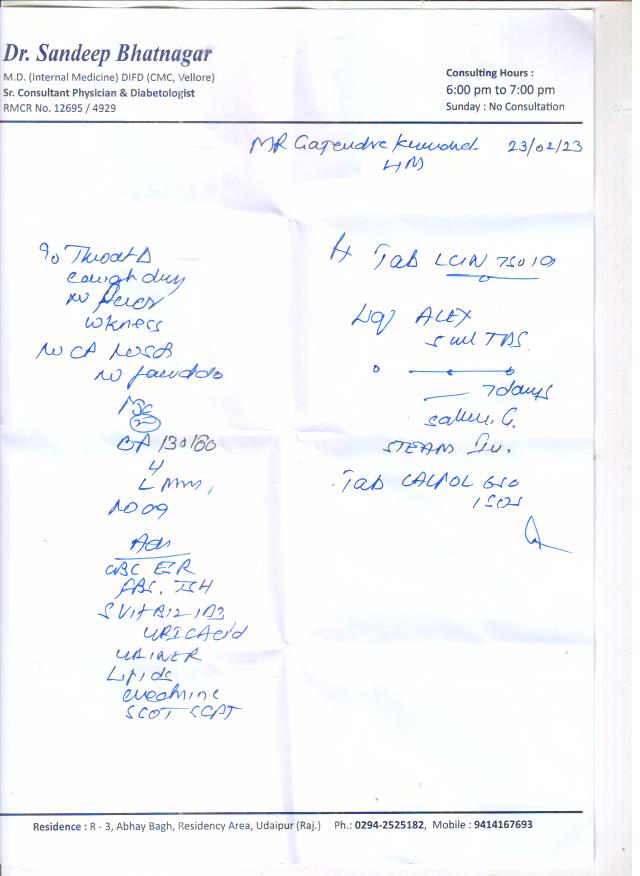 Dr. Sandeep Bhatnagar
M.D. (Internal Medicine) DIFD (CMC, Vellore)
Sr. Consultant Physician & Diabetologist
RMCR No. 12695 / 4929
Consulting Hours :
6:00 pm to 7:00 pm
Sunday : No Consultation
MR Gajendra 23/02/23
Throat
cough dry
no fever
wkness
NO CA
no
BP 130/80
Adv
CBC ESR
FBS. TSH
S Vit B12 D3
URIC Acid
URINE R
Lipids
creatinine
SGOT SGPT
Tab LCIN 750
Liq ALEX
5 ml TDS
7 days
STEAM
Tab CALPOL 650
1 SOS
Residence : R - 3, Abhay Bagh, Residency Area, Udaipur (Raj.) Ph.: 0294-2525182, Mobile : 9414167693